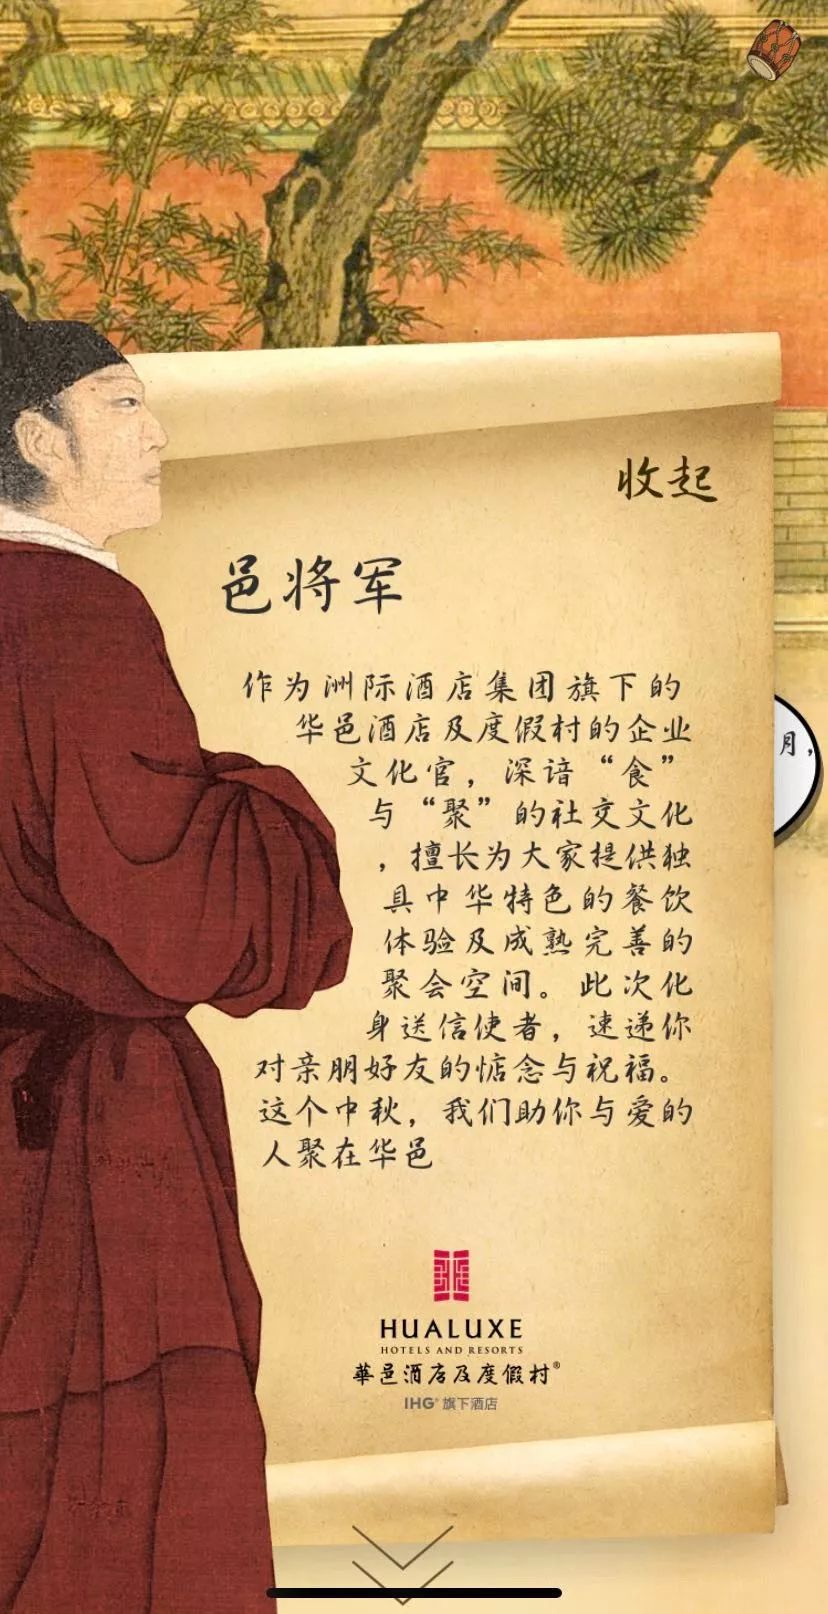 收起
邑将军
作为洲际酒店集团旗下的
华邑酒店及度假村的企业
文化官，深谙“食”
与“聚”的社交文化
，擅长为大家提供独
具中华特色的餐饮
体验及成熟完善的
聚会空间。此次化
身送信使者，速递你
对亲朋好友的惦念与祝福。
这个中秋，我们助你与爱的
人聚在华邑
月，
HUALUXE
HOTELS AND RESORTS
華邑酒店及度假村®
IHG® 旗下酒店